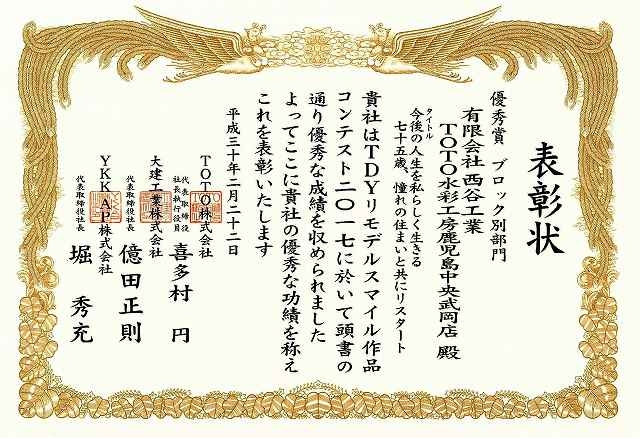 表彰状
優秀賞 ブロック別部門
有限会社 西谷工業
TOTO水彩工房鹿児島中央武岡店 殿
タイトル
今後の人生を私らしく生きる
七十五歳、憧れの住まいと共にリスタート
貴社はTDYリモデルスマイル作品
コンテスト二〇一七に於いて頭書の
通り優秀な成績を収められました
よってここに貴社の優秀な功績を称え
これを表彰いたします
平成三十年二月二十二日
TOTO株式会社
代表取締役
社長執行役員 喜多村 円
大建工業株式会社
代表取締役社長 億田正則
YKK AP株式会社
代表取締役社長 堀 秀充